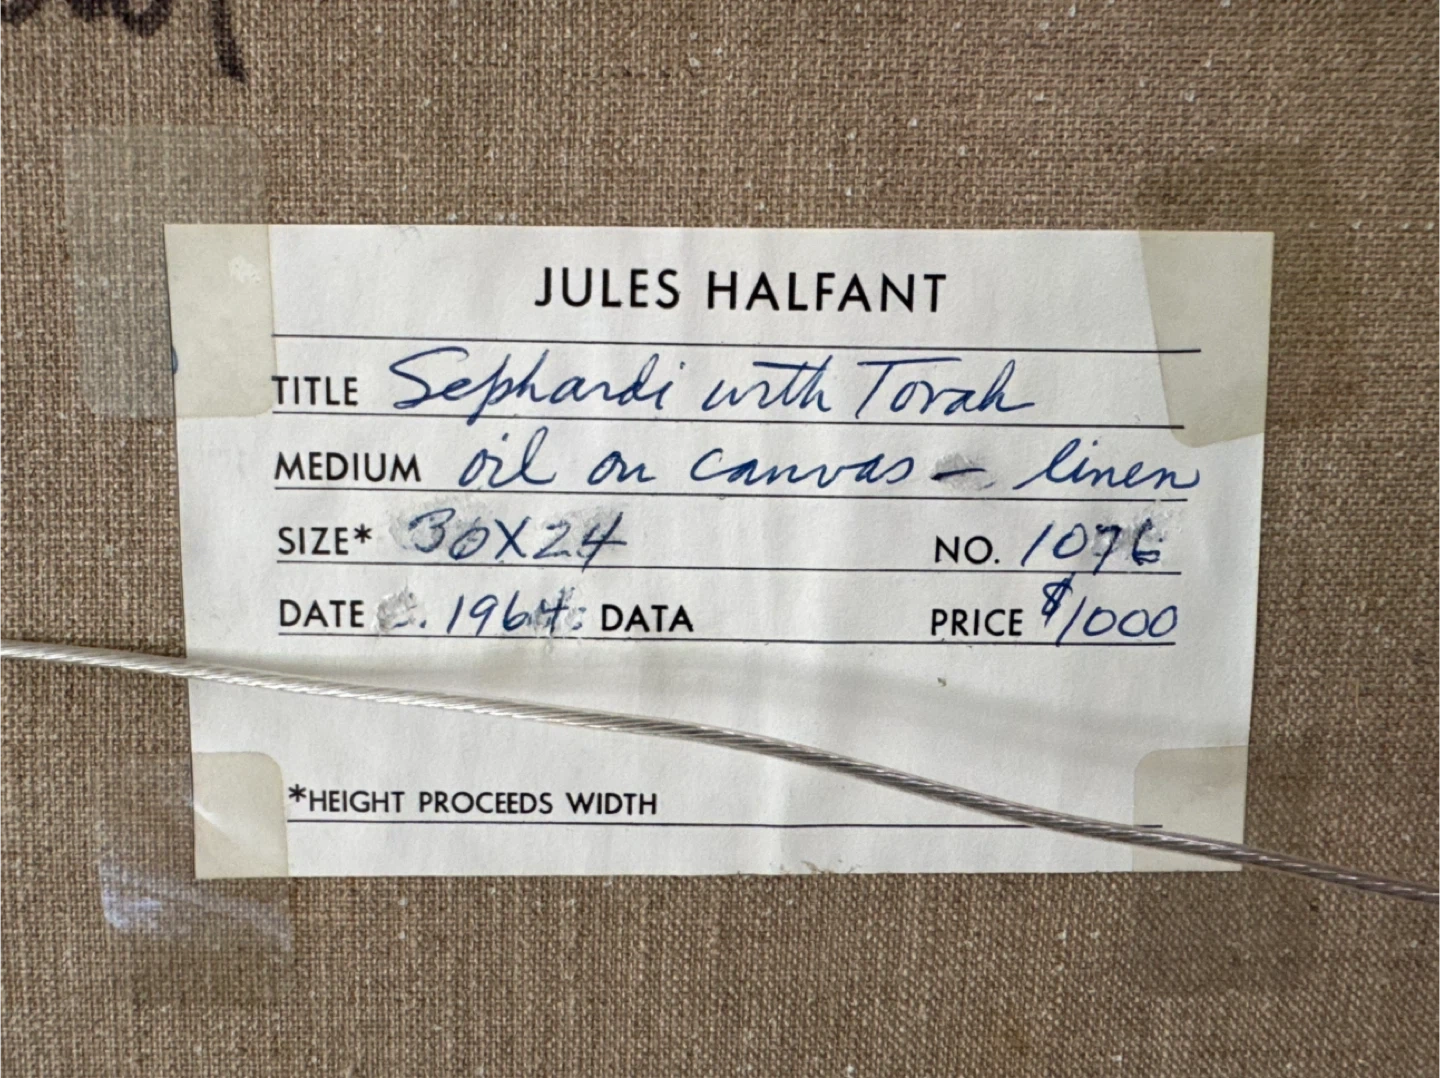 JULES HALFANT
TITLE Sephardi with Torah
MEDIUM oil on canvas – linen
SIZE* 30X24 NO. 1076
DATE c. 1964 DATA PRICE $1000
*HEIGHT PROCEEDS WIDTH